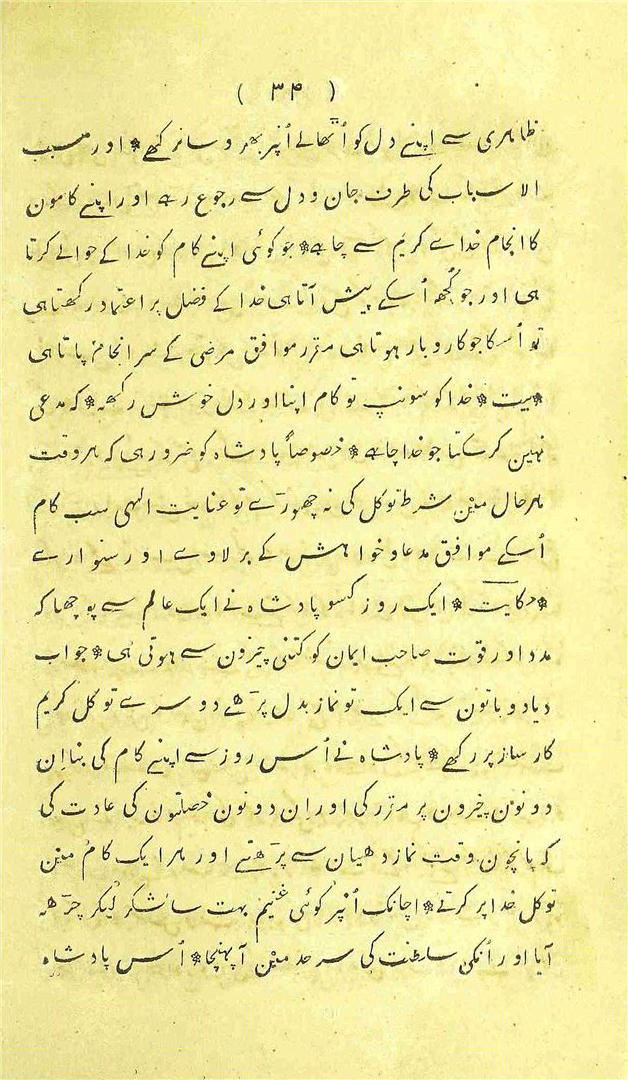 ( ۳۴ )
ظاہری سے اپنے دل کو اُٹھالے اُنپر بھروسا نرکھے * اور مسبب
الاسباب کی طرف جان و دل سے رجوع رہے اور اپنے کامون
کا انجام خداے کریم سے چاہے * جو کوئی اپنے کام کو خدا کے حوالے کرتا
ہی اور جو کُچھ اُسکے پیش آتا ہی خدا کے فضل پر اعتماد رکھتا ہی
تو اُسکا جو کاروبار ہوتا ہی مقرّر موافق مرضی کے سرانجام پاتا ہی
* بیت * خدا کو سونپ تو کام اپنا اور دل خوش رکھہ * کہ مدعی
نہین کرسکتا جو خدا چاہے * خصوصاً پادشاہ کو ضرور ہی کہ ہر وقت
ہر حال مین شرط توکل کی نہ چھوڑے تو عنایت الٰہی سب کام
اُسکے موافق مدعا و خواہش کے بر لاوے اور سنوارے
* حکایت * ایک روز کسو پادشاہ نے ایک عالم سے پوچھا کہ
مدد اور قوت صاحب ایمان کو کتنی چیزون سے ہوتی ہی * جواب
دیا دو باتون سے ایک تو نماز بدل پڑھے دوسرے توکل کریم
کارساز پر رکھے * پادشاہ نے اُس روز سے اپنے کام کی بنا اِن
دونون چیزون پر مقرّر کی اور اِن دونون خصلتون کی عادت کی
کہ پانچون وقت نماز دھیان سے پڑھتے اور ہر ایک کام مین
توکل خدا پر کرتے * اچانک اُنپر کوئی غنیم بہت سا لشکر لیکر چڑھہ
آیا اور اُنکی سلطنت کی سرحد مین آ پہنچا * اُس پادشاہ